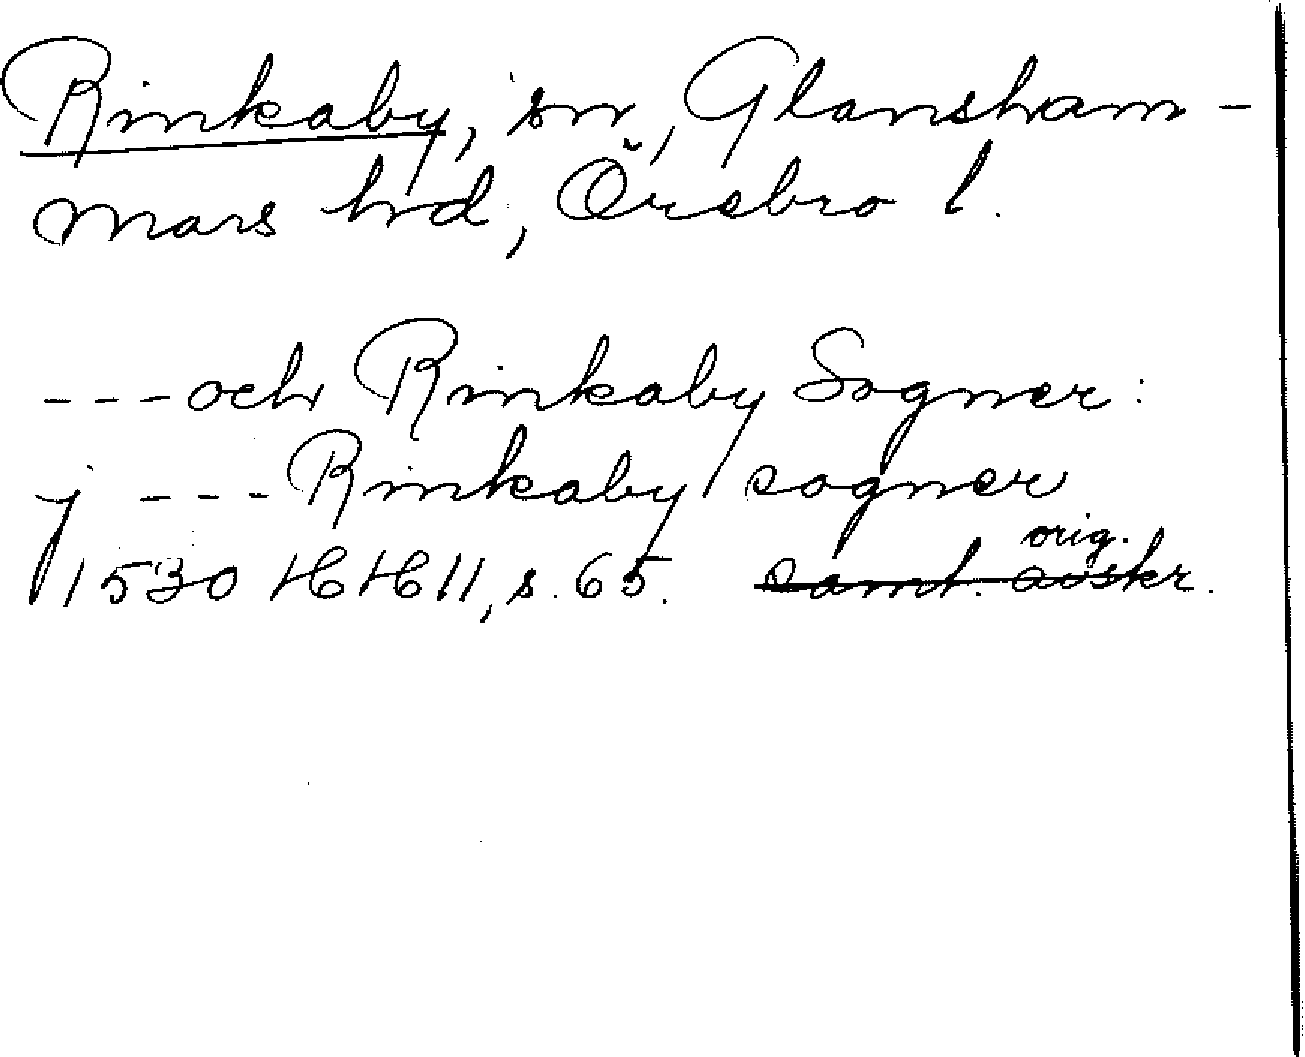 Rinkaby, sn, Glansham-
mars hrd, Örebro l.
---och Rinkaby Sogner:
j --- Rinkaby sogner
1530 HH 11, s. 65. samt. avskr. orig.